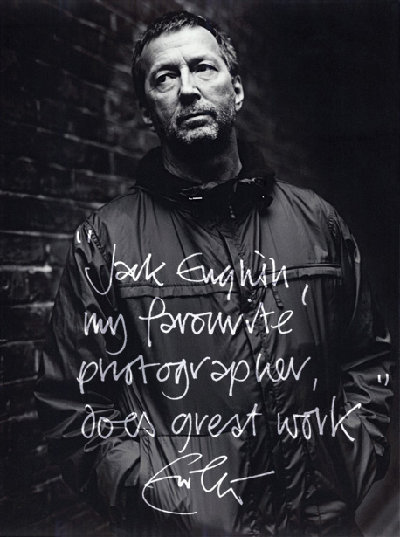 "Jack English,
my favourite
photographer,
does great work"